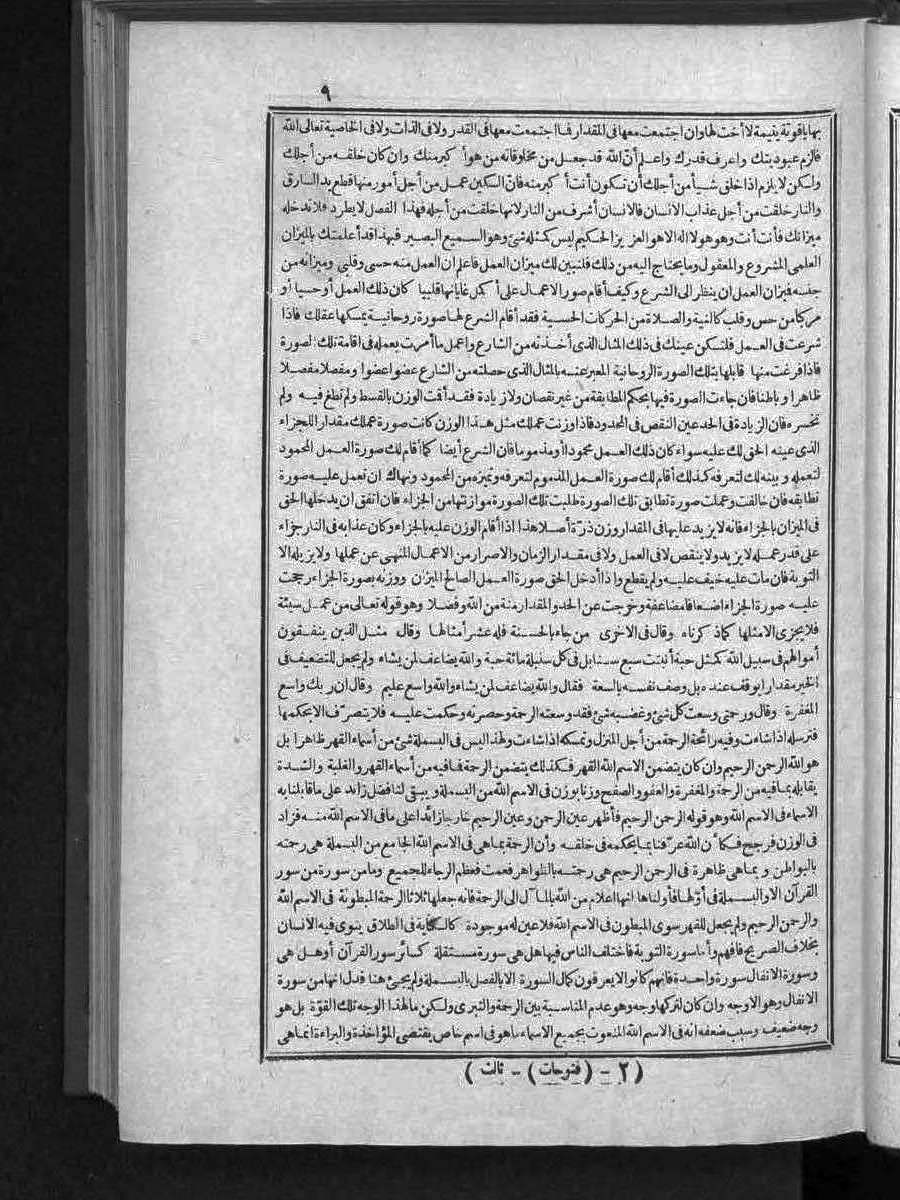 ٩
بها ياقوتة يتيمة لا أخت لها وان اجتمعت معها في المقدار فما اجتمعت معها في القدر ولا في الذات ولا في الخاصية تعالى الله
فالزم عبوديتك واعرف قدرك واعلم أنّ الله قد جعل من مخلوقاته من هو أكبر منك وان كان خلقه من أجلك
ولكن لا يلزم اذا خلق شيأ من أجلك أن تكون أنت أكبر منه فانّ السكين عمل من أجل أمور منها قطع يد السارق
والنار خلقت من أجل عذاب الانسان فالانسان أشرف من النار لانها خلقت من أجله فهذا الفصل لا يطرد فلا تدخله
ميزانك فأنت أنت وهو هو لا اله الا هو العزيز الحكيم ليس كمثله شئ وهو السميع البصير فبهذا قد أعلمتك بالميزان
العلمى المشروع والمعقول وما يحتاج اليه من ذلك فلنبين لك ميزان العمل فاعلم ان العمل منه حسى وقلبى وميزانه من
جنسه فميزان العمل ان ينظر الى الشرع وكيف أقام صور الاعمال على أكمل غاياتها قلبيا كان ذلك العمل أو حسيا أو
مركبا من حس وقلب كالنية والصلاة من الحركات الحسية فقد أقام الشرع لها صورة روحانية يمسكها عقلك فاذا
شرعت في العمل فلتكن عينك في ذلك المثال الذى أخذته من الشارع واعمل ما أمرت بعمله في اقامة تلك الصورة
فاذا فرغت منها قابلها بتلك الصورة الروحانية المعبر عنه بالمثال الذى حصلته من الشارع عضوا عضوا ومفصلا مفصلا
ظاهرا وباطنا فان جاءت الصورة فيها بحكم المطابقة من غير نقصان ولا زيادة فقد أقت الوزن بالقسط ولم تطغ فيه ولم
تخسره فان الزيادة في الحد عين النقص في المحدود فاذا وزنت عملك مثل هذا الوزن كانت صورة عملك مقدار اللجزاء
الذى عينه الحق لك عليه سواء كان ذلك العمل محمودا أو مذموما فان الشرع أيضا كما أقام لك صورة العمل المحمود
لتعمله وبينه لك لتعرفه كذلك أقام لك صورة العمل المذموم لتعرفه وتميزه من المحمود ونهاك ان تعمل عليه صورة
تطابقه فان خالفت وعملت صورة تطابق تلك الصورة طلبت تلك الصورة موازنتها من الجزاء فان اتفق ان يدخلها الحق
في الميزان بالجزاء فانه لا يزيد عليها في المقدار وزن ذرّة أصلا هذا اذا أقام الوزن عليه بالجزاء وكان عذابه في النار جزاء
على قدر عمله لا يزيد ولا ينقص لا في العمل ولا في مقدار الزمان والاصرار من الاعمال المنهى عن عملها ولا يزيله الا
التوبة فان مات عليه خيف عليه ولم يقطع واذا أدخل الحق صورة العمل الصالح الميزان ووزنه بصورة الجزاء رجحت
عليه صورة الجزاء اضعافا مضاعفة وخرجت عن الحد والمقدار منة من الله وفضلا وهو قوله تعالى من عمل سيئة
فلا يجزى الا مثلها كما ذكرناه وقال في الاخرى من جاء بالحسنة فله عشر أمثالها وقال مثل الذين ينفقون
أموالهم في سبيل الله كمثل حبة أنبتت سبع سنابل في كل سنبلة مائة حبة والله يضاعف لمن يشاء ولم يجعل للتضعيف في
الخير مقدارا يوقف عنده بل وصف نفسه بالسعة فقال والله يضاعف لمن يشاء والله واسع عليم وقال ان ربك واسع
المغفرة وقال ورحمتى وسعت كل شئ وغضبه شئ فقد وسعته الرحمة وحصرته وحكمت عليه فلا يتصرّف الا بحكمها
فترسله اذا شاءت وفيه رائحة الرحمة من أجل المنزل وتمسكه اذا شاءت ولهذا ليس في البسملة شئ من أسماء القهر ظاهرا بل
هو الله الرحمن الرحيم وان كان يتضمن الاسم الله القهر فكذلك يتضمن الرحمة فما فيه من أسماء القهر والغلبة والشدة
يقابله بما فيه من الرحمة والمغفرة والعفو والصفح وزنا بوزن في الاسم الله من البسملة ويبقى لنا فضل زائد على ما قابلنا به
الاسماء في الاسم الله وهو قوله الرحمن الرحيم فأظهر عين الرحمن وعين الرحيم خارجا زائدا على ما في الاسم الله منه فزاد
في الوزن فرجح فكأن الله عرّفنا بما يحكمه في خلقه وأن الرحمة بما هى في الاسم الله الجامع من البسملة هى رحمته
بالبواطن وبما هى ظاهرة في الرحمن الرحيم هى رحمته بالظواهر فعمت فعظم الرجاء للجميع وما من سورة من سور
القرآن الا والبسملة في أوّلها فأولناها انها اعلام من الله بالمآل الى الرحمة فانه جعلها ثلاثا الرحمة المبطونة في الاسم الله
والرحمن الرحيم ولم يجعل للقهر سوى المبطون في الاسم الله فلا عين له موجودة كالكناية في الطلاق ينوى فيه الانسان
بخلاف الصريح فافهم وأما سورة التوبة فاختلف الناس فيها هل هى سورة مستقلة كسائر سور القرآن أو هل هى
وسورة الانفال سورة واحدة فانهم كانوا لا يعرفون كمال السورة الا بالفصل بالبسملة ولم يجئ هنا فدل انها من سورة
الانفال وهو الاوجه وان كان لتركها وجه وهو عدم المناسبة بين الرحمة والتبرى ولكن ما لهذا الوجه تلك القوّة بل هو
وجه ضعيف وسبب ضعفه انه في الاسم الله المنعوت بجميع الاسماء ما هو في اسم خاص يقتضى المؤاخذة والبراءة انما هى
(٢ - (فتوحات) - ثالث)